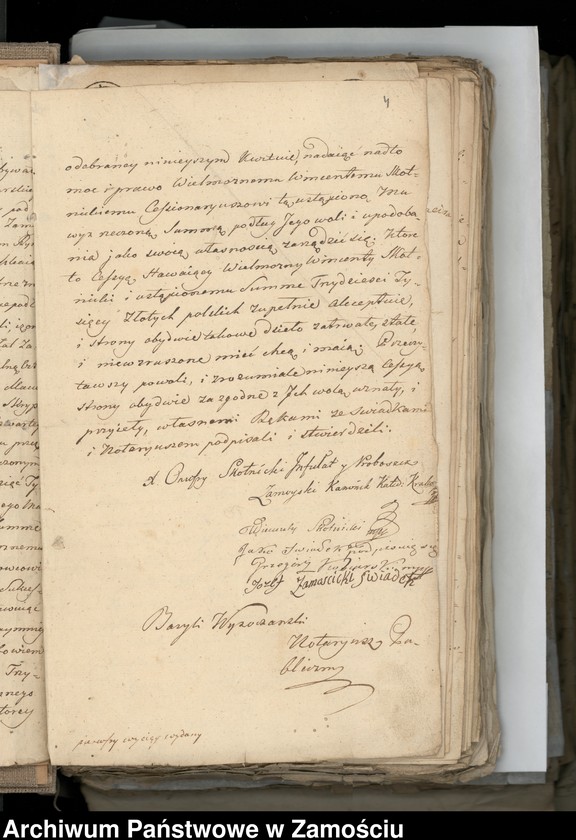 4
odebraney ninieyszym Kwituie, nadaiąc nadto
moc i prawo Wielmożnemu Wincentemu Skot-
nickiemu Cessionaryuszowi tą ustąpioną Mu
wyznaczoną Summą podług Jego woli i upodoba
nia jako swoią własnością zarządzić się. Które
to Cessyą Stawaiący Wielmożny Wincenty Skot-
nicki i ustąpionemu Summę Trzydzieści Ty-
sięcy Złotych polskich zupełnie akceptuie,
i strony obydwie takowe dzieło zatrwałe, stałe,
i niewzruszone mieć chcą i maią. Przeczy-
tawszy powoli, i zrozumiale ninieyszą Cessyą
strony obydwie za zgodne z Ich wolą uznały, i
przyięły, własnemi Rękami ze Swiadkami
i Notaryuszem podpisali i stwierdzili.
X Onufry Skotnicki Infułat y Proboszcz
Zamoyski Kanonik Kated.
Wincenty Skotnicki mp
Jako Swiadek podpisuię się
Grzegorz
Jozef Zamoscicki Swiadek
Bazyli Wysoczanski
Notaryusz Pu-
bliczny
pierwszy wyciąg wydany
Archiwum Państwowe w Zamościu